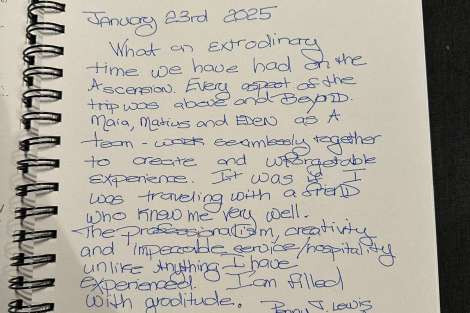 January 23rd 2025
What an extrodinary
time we have had on the
Ascension. Every aspect of the
trip was above and Beyond.
Maia, Matius and EDEN as A
team - work seamlessly together
to create and unforgatable
experience. It was if I
was traveling with a friend
who knew me very well.
The professionalism, creativity
and impeccable service/hospitality
unlike anything I have
experienced. I am filled
with graditude.
Penny J. Lewis